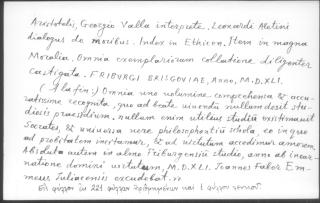 Aristotelis, Georgio Valla interprete. Leonardi Aretini
dialogus de moribus. Index in Ethicen, Item in magna
Moralia. Omnia exemplariorum collatione diligenter
castigata. FRIBURGI BRISGOVIAE, Anno, M.D.XLI.
(Latin:) Omnia uno volumine comprehensa & accu-
ratissime recognita, quo ad beate uiuendū nullum deest stu-
diosis praesidium. nullum enim utilius studiū existimauit
Socrates, & universa uere philosophantiū schola, eo in quo
ad probitatem incitamur, & ad uirtutum accedimur amorem.
Absoluta autem in almo Friburgensiū studio, anno ab incar-
natione domini uirtutum, M.D.XLI. Ioannes Faber Em-
meus Iuliacensis excudebat.
221 φύλλα ἠριθμημένα καὶ 1 φύλλον